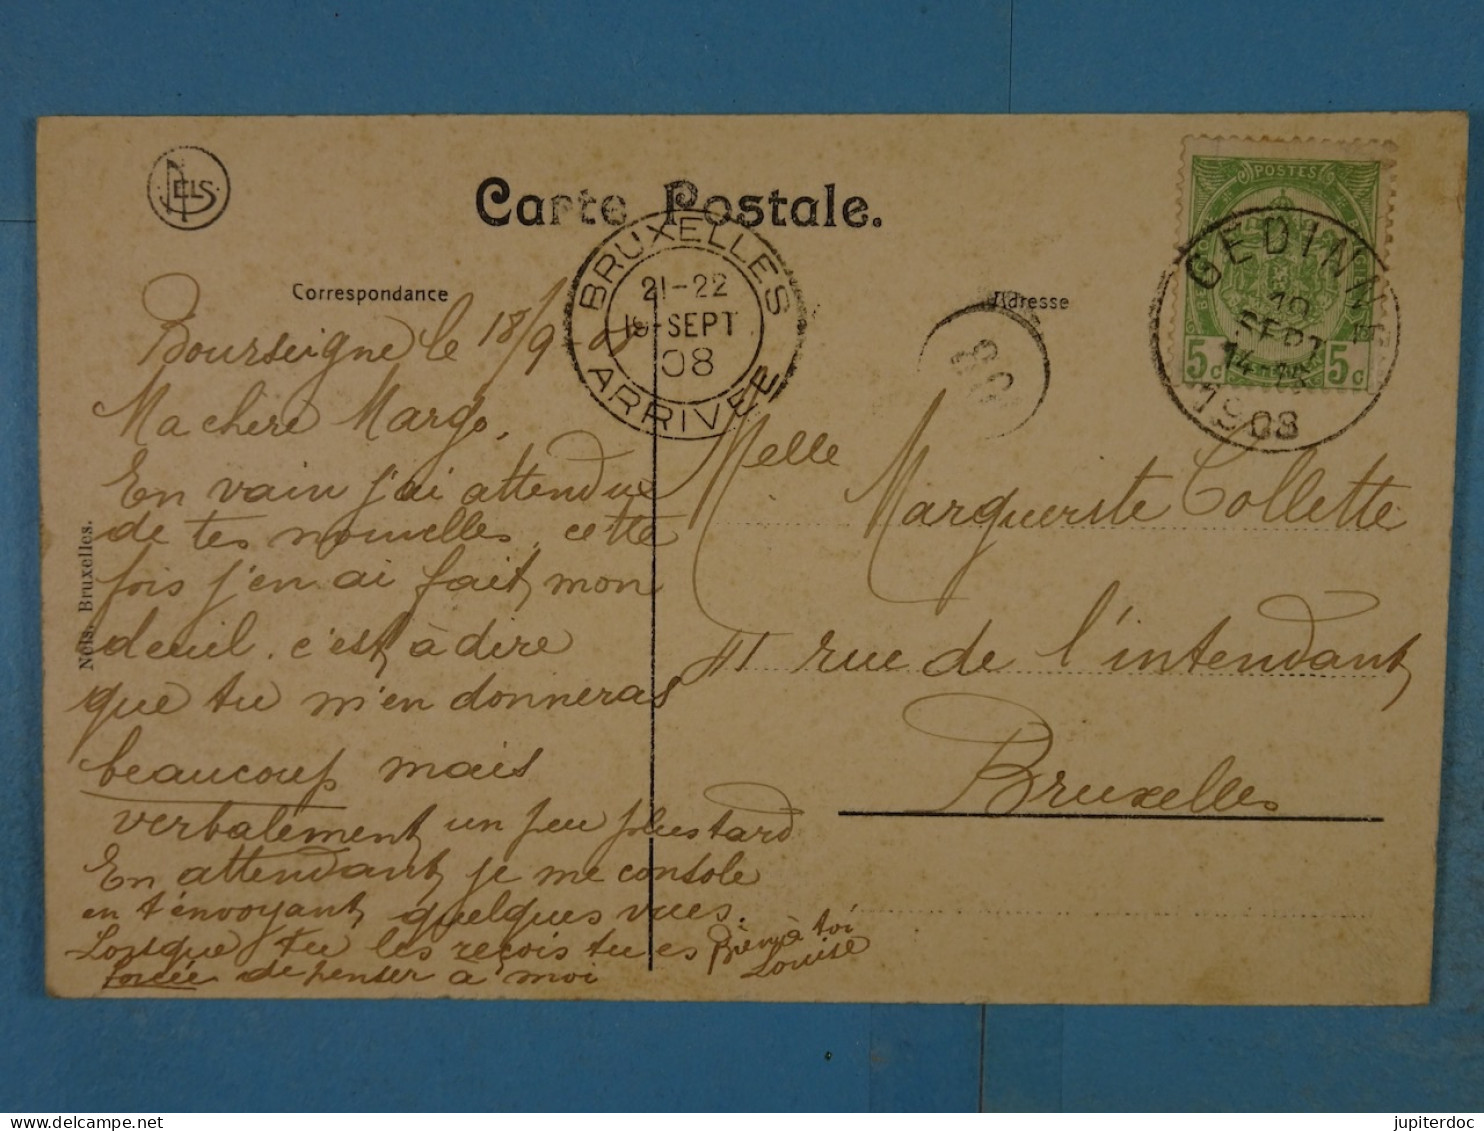 NELS
Carte Postale.
BRUXELLES
21-22
SEPT
08
ARRIVEE
Correspondance
Adresse
POSTES
5c 5c
GEDINNE
SEPT
1908
Bourseigne le 18/9-08
Ma chère Margo,
En vain j'ai attendue
de tes nouvelles, cette
fois j'en ai fait mon
deuil. c'est à dire
que tu m'en donneras
beaucoup mais
verbalement un peu plus tard
En attendant je me console
en t'envoyant quelques vues.
Lorsque tu les reçois tu es
forcée de penser à moi
Bien à toi
Louise
Melle
Marguerite Collette
11 rue de l'intendant
Bruxelles
Nels. Bruxelles.
jupiterdoc